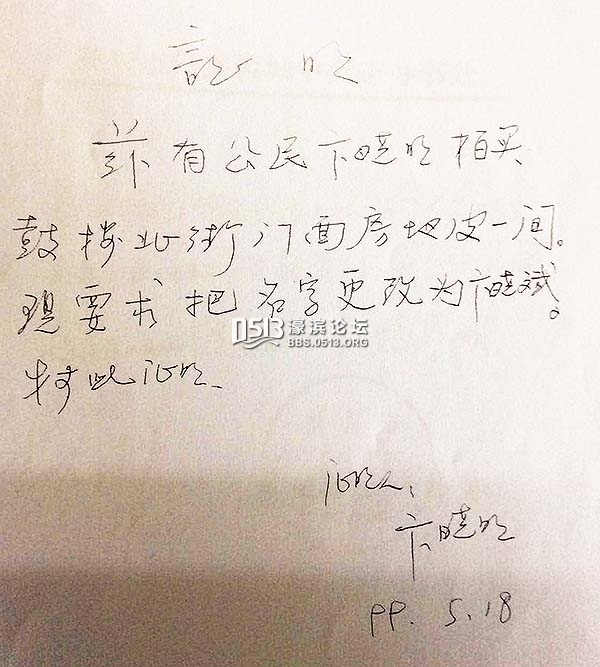 証明
兹有公民卞晓明拍买
鼓楼北街门面房地皮一间。
现要求把名字更改为卞晓斌。
0513 濠滨论坛
BBS.0513.ORG
特此证明.
证明人:
卞晓明
99.5.18